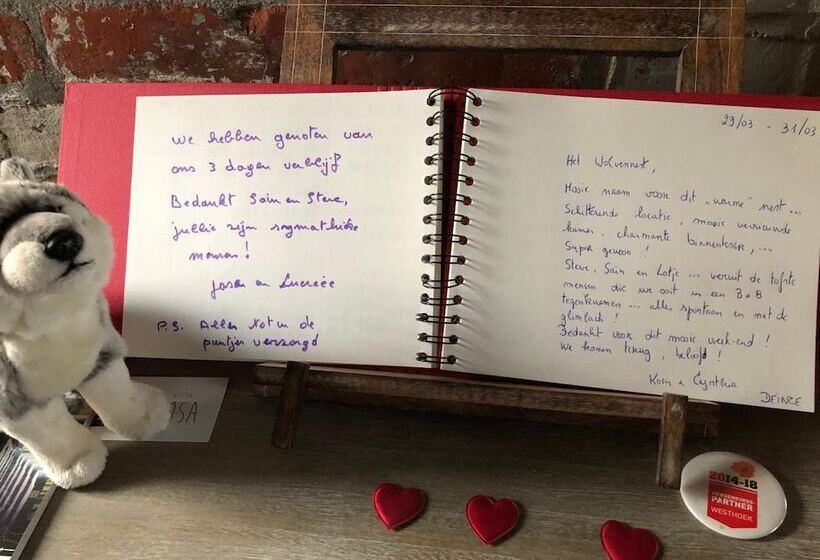 We hebben genoten van
ons 3 dagen verblijf
Bedankt Soin en Steve,
jullie zijn
mensen!
en Lucrèce
P.S. Alles tot in de
puntjes verzorgd
29/03 - 31/03
Het Wolvennest,
Mooie naam voor dit "warme" nest...
Schitterende locatie, mooie verzorgde
kamer, charmante binnenkoer,...
Super gewoon!
Steve, Soin en Lotje... veruit de tofste
mensen die we ooit in een B&B
tegenkwamen... alles spontaan en met de
glimlach!
Bedankt voor dit mooie week-end!
We komen terug, beloofd!
Koen & Cynthia
DEINZE
2014-18
HERDENKINGS-
PARTNER
WESTHOEK